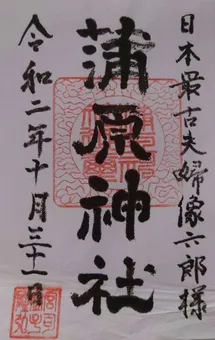 日本最古夫婦像六郎様
蒲原神社
令和二年十月三十一日